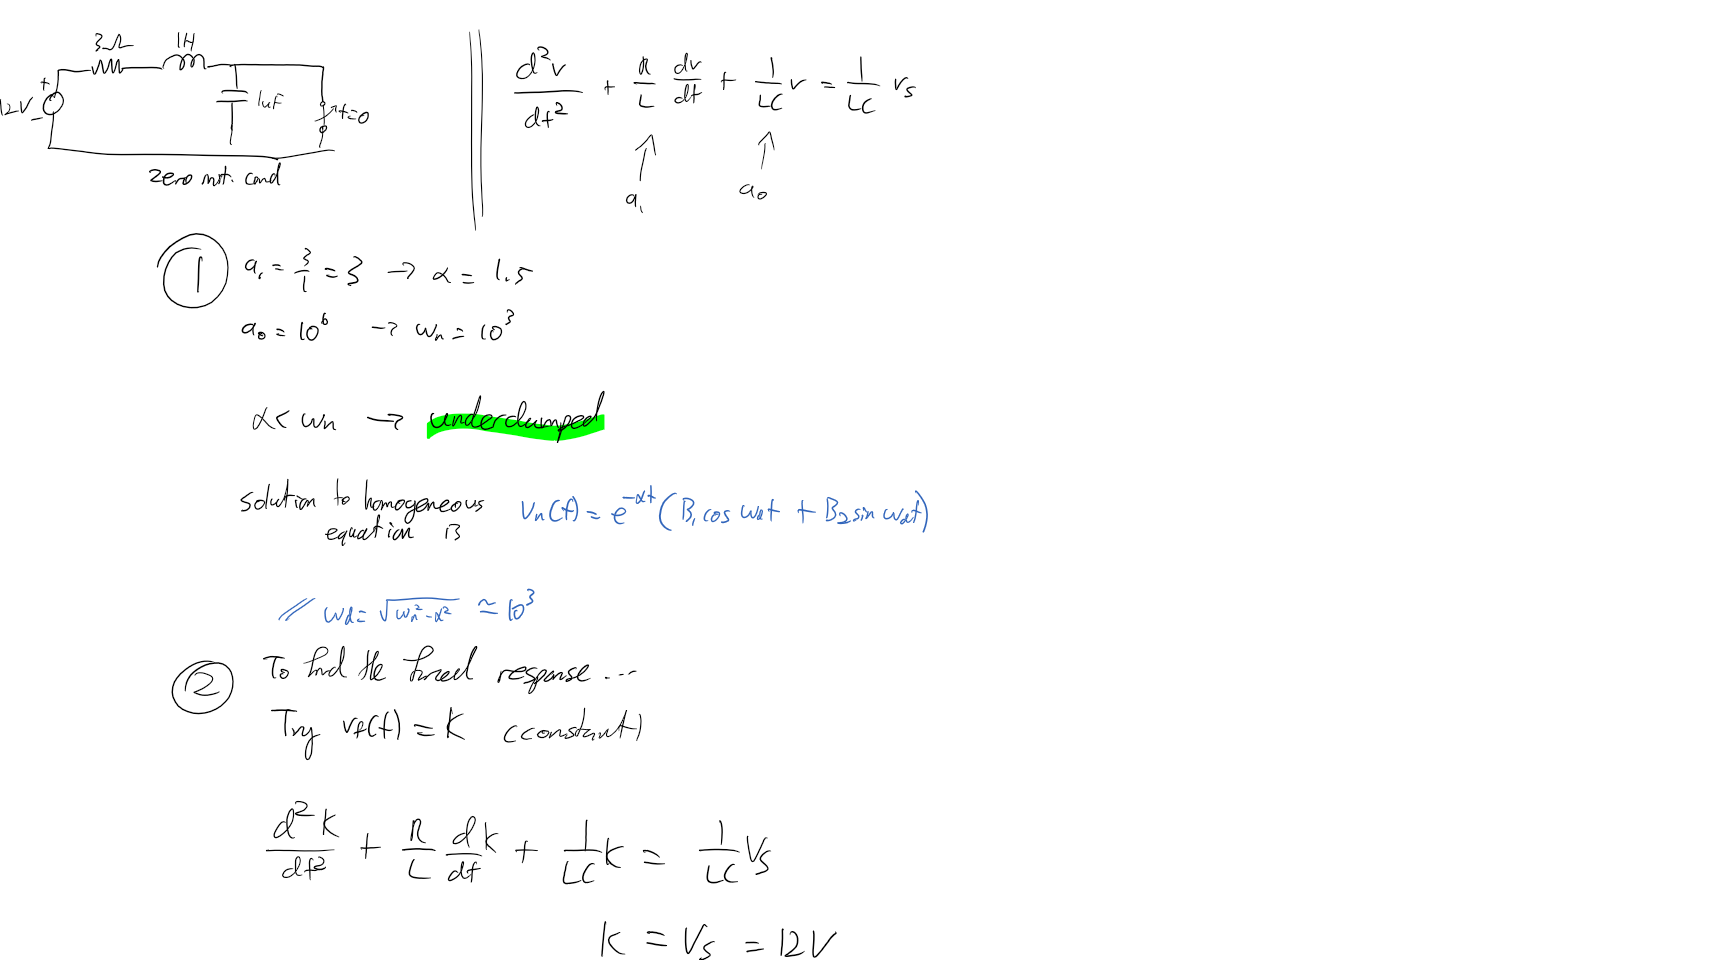 3Ω 1H
12V + − 1uF t=0
zero init. cond
d²v/dt² + R/L dv/dt + 1/LC v = 1/LC vs
a₁ a₀
① a₁ = 3/1 = 3 → α = 1.5
a₀ = 10⁶ → ωn = 10³
α < ωn → underdamped
solution to homogeneous vn(t) = e^-αt (B₁ cos ωdt + B₂ sin ωdt)
equation is
// ωd = √(ωn² - α²) ≃ 10³
② To find the forced response ...
Try vf(t) = K (constant)
d²K/dt² + R/L dK/dt + 1/LC K = 1/LC Vs
K = Vs = 12V